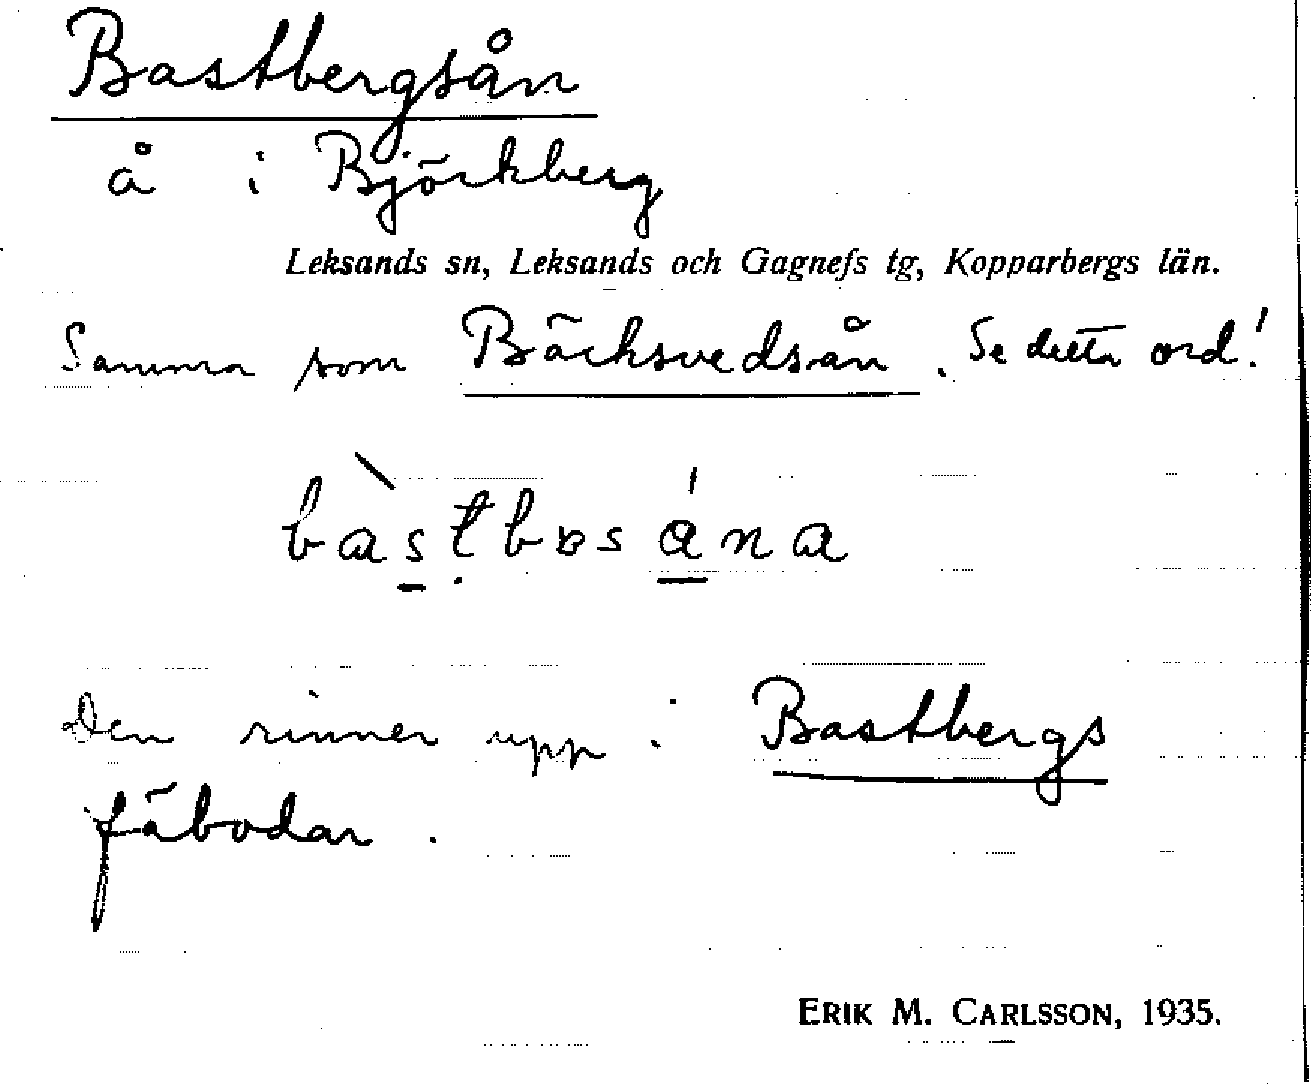 Bastbergsån
å i Björkberg
Leksands sn, Leksands och Gagnefs tg, Kopparbergs län.
Samma som Bäcksvedsån. Se detta ord!
Den rinner upp i Bastbergs
fäbodar.
ERIK M. CARLSSON, 1935.